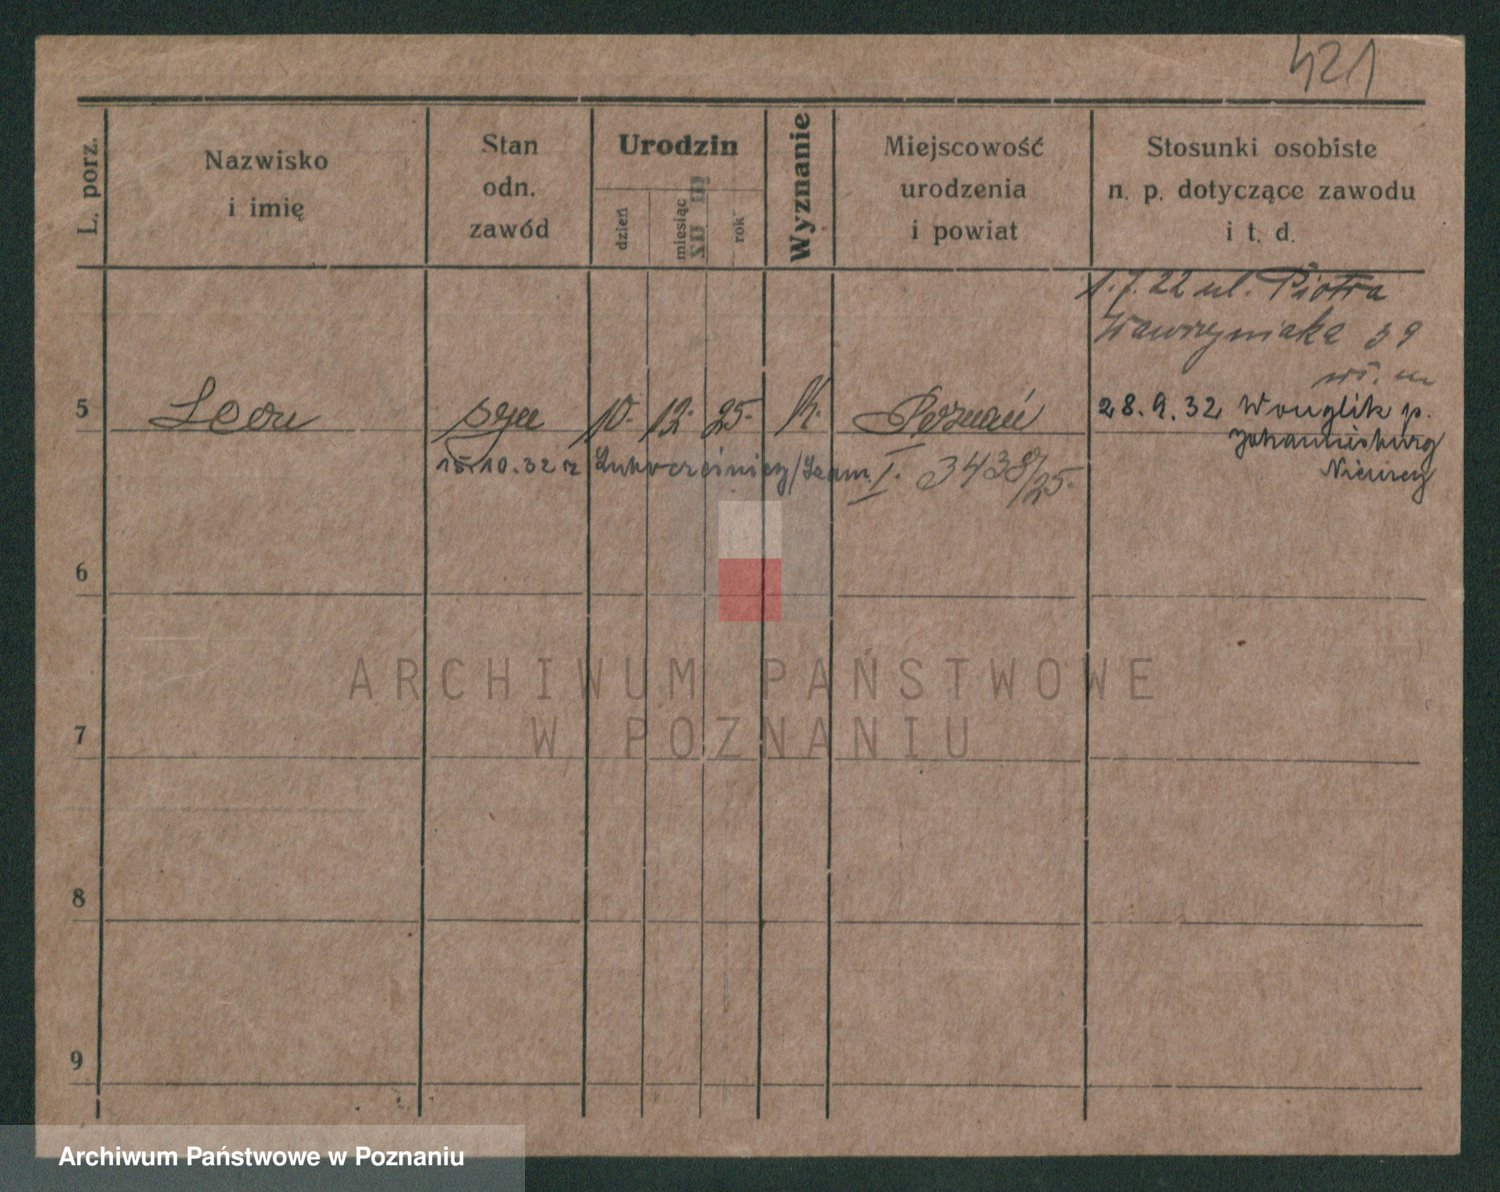 421
L. porz.
Nazwisko
i imię
Stan
odn.
zawód
Urodzin
dzień
miesiąc
rok
Wyznanie
Miejscowość
urodzenia
i powiat
Stosunki osobiste
n. p. dotyczące zawodu
i t. d.
1.7.22 ul. Piotra
Wawrzyniaka 39
5 Leon syn 10. 12. 25. k. Poznań 28.9.32 p.
Johannisburg
15.10.32 z I. 3438/25.
Niemcy
6
7
8
9
ARCHIWUM PAŃSTWOWE
W POZNANIU
Archiwum Państwowe w Poznaniu